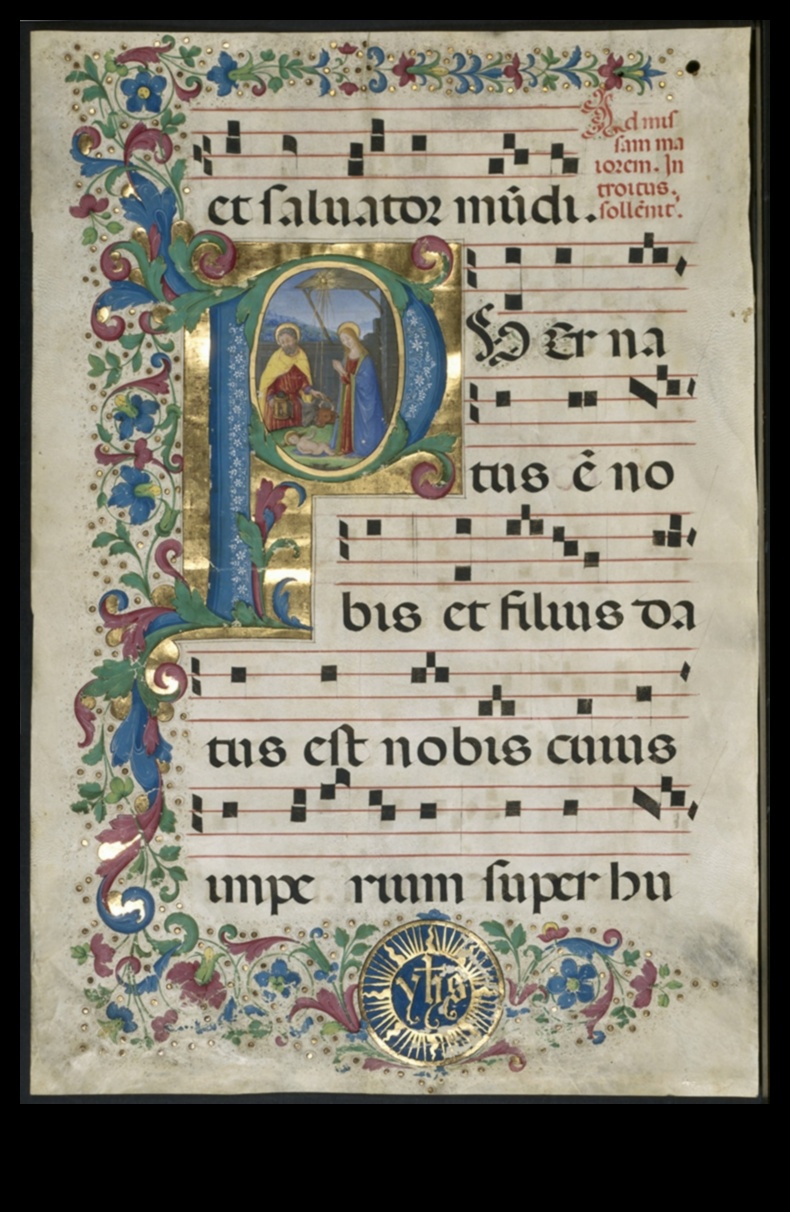 et saluator mūdi.
Ad mis
sam ma
iorem. In
troitus.
sollēnit̄.
P Uer na
tus ē no
bis et filius da
tus est nobis cuius
impe rium super hu
yhs